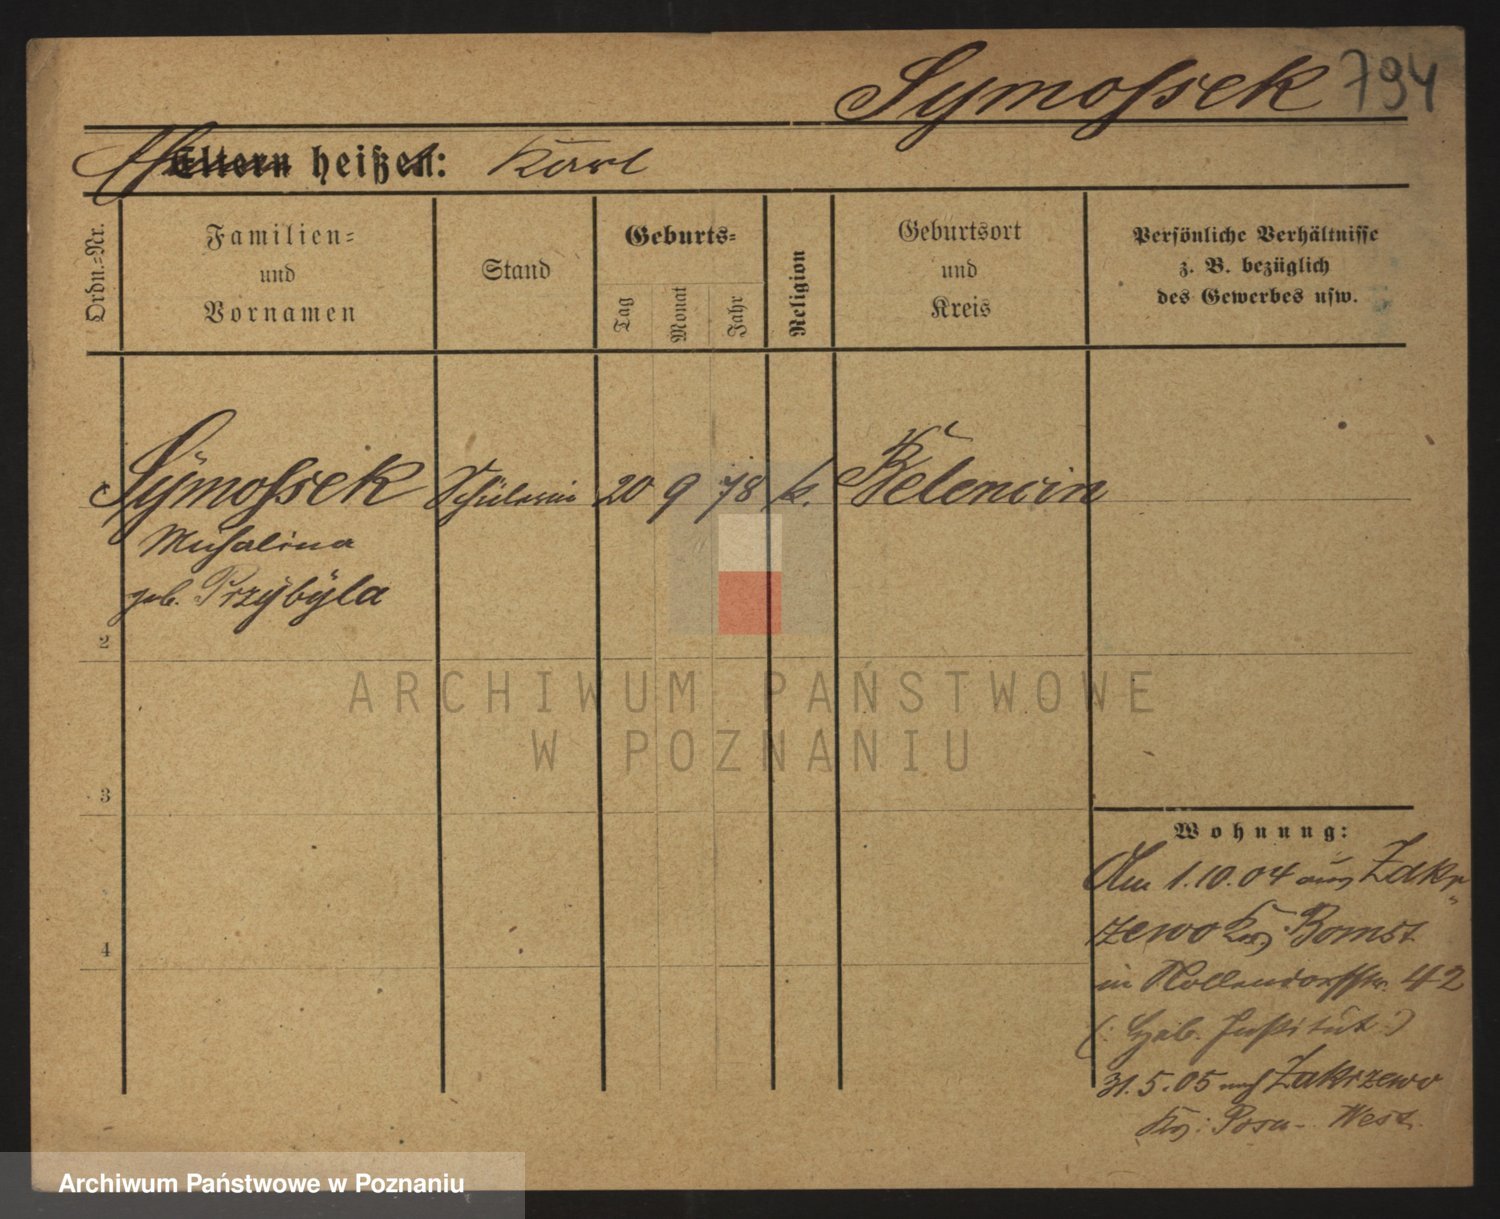 Symossek 794
Eltern heißen: Karl
Ordn.-Nr.
Familien-
und
Vornamen
Stand
Geburts-
Tag
Monat
Jahr
Religion
Geburtsort
und
Kreis
Persönliche Verhältnisse
z. B. bezüglich
des Gewerbes usw.
1 Symossek Schülerin 20 9 78 k.
Michalina
geb. Przybyla
2
3
4
Wohnung:
Am 1.10.04 aus Zakr-
zewo Krs. Bomst
in Nollendorfstr. 42
(: Heb. Institut :)
31.5.05 nach Zakrzewo
Krs: Posen-West.
ARCHIWUM PAŃSTWOWE
W POZNANIU
Archiwum Państwowe w Poznaniu